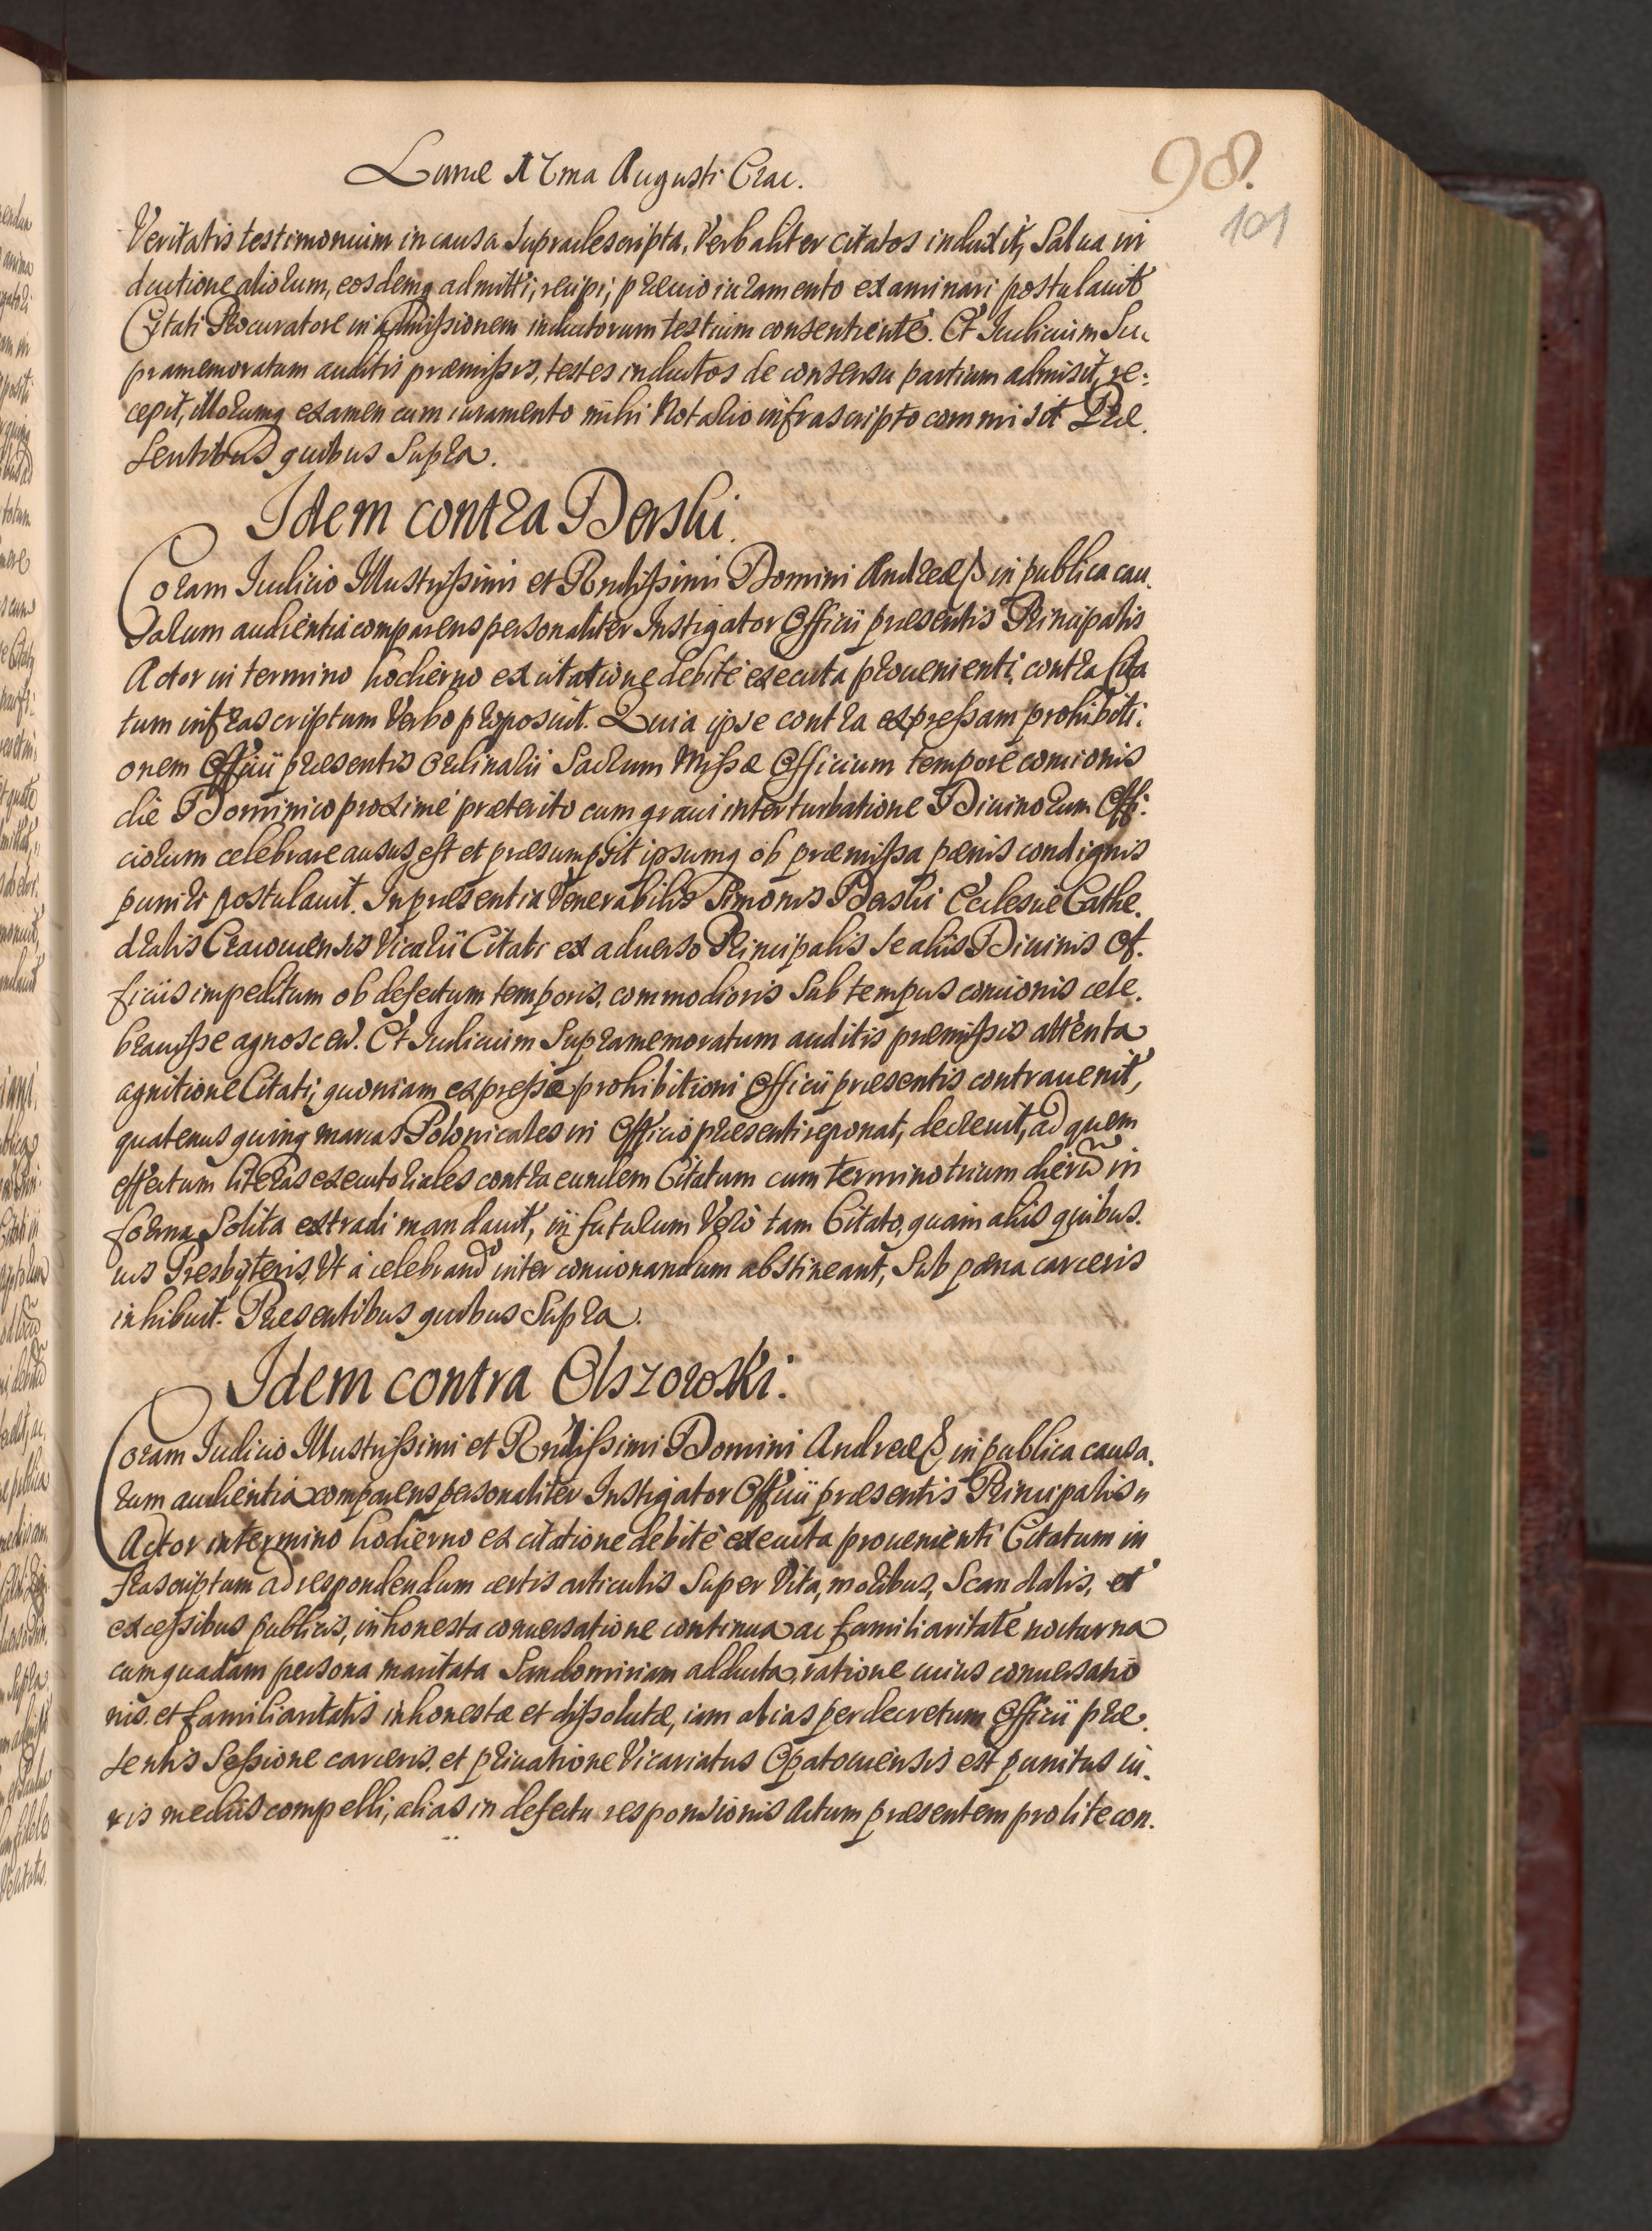 Lunæ 17ma Augusti Crac.
98.
101
Veritatis testimonium in causa supradescripta, Verbaliter citatos induxit, Salua in
ductione aliorum, eosdemq admitti, recipi, præuio iuramento examinari postulauit
Citati Procuratore in admißionem inductorum testium consentiente. Et Iudicium Su
pramemoratum auditis præmißis, testes inductos de consensu partium admisit, re:
cepit, illorumq examen cum iuramento mihi Notario infrascripto commisit Præ.
sentibus quibus Supra.
Idem contra Berski.
Coram Iudicio Illustrißimi et Rndißimi Domini Andreæ ß in publica cau.
sarum audientia comparens personaliter Instigator Officii præsentis Principalis
Actor in termino hodierno ex citatione debitè executa proueniente, contra Cita
tum infrascriptum Verbo proposuit. Quia ipse contra expreßam prohibiti:
onem Officii præsentis Ordinarii Sacrum Mißæ Officium tempore concionis
die Dominico proximè præterito cum graui interturbatione Diuinorum Offi:
ciorum celebrare ausus est et præsumpsit ipsumq ob præmißa pænis condignis
puniri postulauit. In præsentia Venerabilis Simonis Berski Ecclesiæ Cathe.
dralis Cracouiensis Vicarii Citati ex aduerso Principalis se aliis Diuinis Of.
ficiis impeditum ob defectum temporis, commodioris Sub tempus concionis cele.
brauiße agnoscen. Et Iudicium Supramemoratum auditis præmißis attenta
agnitione Citati, quoniam expreßæ prohibitioni Officii præsentis contrauenit,
quatenus quinq marcas Polonicales in Officio præsenti reponat, decreuit, ad quem
effectum literas executoriales contra eundem Citatum cum termino trium dierũ in
forma Solita extradi mandauit, in futurum Verò tam Citato, quàm aliis quibus.
uis Presbyteris, Vt à celebrand inter concionandum abstineant, Sub pæna carceris
inhibuit. Præsentibus quibus Supra.
Idem contra Olszowski.
Coram Iudicio Illustrißimi et Rndißimi Domini Andreæ ß in publica causa.
rum audientia comparens personaliter Instigator Officii præsentis Principalis
Actor in termino hodierno ex citatione debitè executa prouenienti Citatum in
frascriptum ad respondendum certis articulis Super Vita, moribus, Scandalis, et
exceßibus publicis, inhonesta conuersatione continua ac familiaritate nocturna
cum quadam persona maritata Sandomiriam adducta, ratione cuius conuersatio
nis, et familiaritatis inhonestæ et dißolutæ, iam alias per decretum Officii præ.
sentis Seßione carceris, et priuatione Vicariatus Opatouiensis est punitus iu.
ris mediis compelli, alias in defectu responsionis Actum præsentem pro lite con.